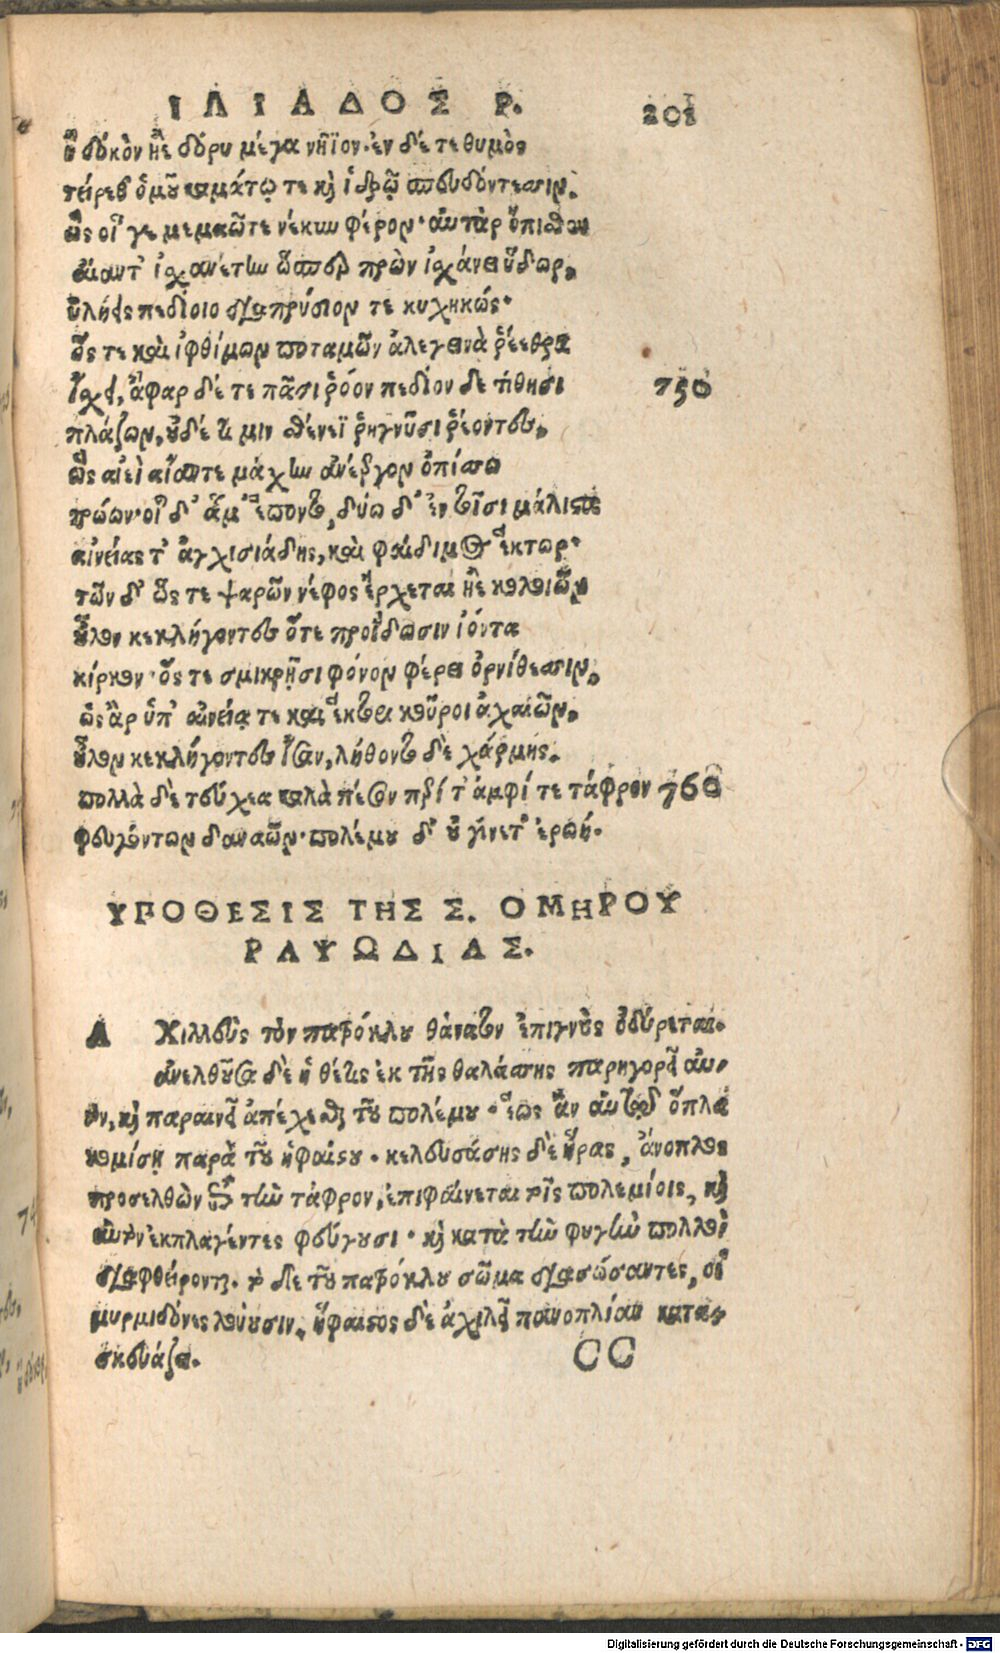 ΙΛΙΑΔΟΣ Ρ. 201
ἢ δόκον ἠὲ δόρυ μέγα νήϊον· ἐν δέ τε θυμὸς
τείρεθ' ὁμοῦ καμάτῳ τε καὶ ἱδρῷ σπευδόντεσσιν.
ὣς οἵ γε μεμαῶτε νέκυν φέρον· αὐτὰρ ὄπισθεν
αἴαντ' ἰσχανέτην ὥσπερ πρὼν ἰσχάνει ὕδωρ,
ὑλήεις πεδίοιο διαπρύσιόν τε κυχηκώς·
ὅς τε καὶ ἰφθίμων ποταμῶν ἀλεγεινὰ ῥέεθρα
ἴσχει, ἄφαρ δέ τε πᾶσι ῥόον πεδίον δε τίθησι
750
πλάζων, οὐδέ τι μιν σθένεϊ ῥηγνῦσι ῥέοντες,
ὣς αἰεὶ αἴαντε μάχην ἀνέεργον ὀπίσσω
τρώων· οἱ δ' ἅμ' ἕποντο, δύω δ' ἐν τοῖσι μάλιστα
αἰνείας τ' ἀγχισιάδης, καὶ φαίδιμος ἕκτωρ·
τῶν δ' ὥς τε ψαρῶν νέφος ἔρχεται ἠὲ κολοιῶν
οὖλον κεκλήγοντες ὅτε προΐδωσιν ἰόντα
κίρκον· ὅς τε σμικρῇσι φόνον φέρει ὀρνίθεσσιν,
ὡς ἂρ ὑπ' αἰνείᾳ τε καὶ ἕκτορι κοῦροι ἀχαιῶν,
οὖλον κεκλήγοντες ἴσαν, λήθοντο δὲ χάρμης.
πολλὰ δὲ τεύχεα καλὰ πέσον περί τ' ἀμφί τε τάφρον 760
φευγόντων δαναῶν· πολέμου δ' οὐ γίνετ' ἐρωή.
ΥΠΟΘΕΣΙΣ ΤΗΣ Σ. ΟΜΗΡΟΥ
ΡΑΨΩΔΙΑΣ.
ΑΧιλλεὺς τὸν πατρόκλου θάνατον ἐπιγνοὺς ὀδύρεται.
ἀνελθοῦσα δὲ ἡ θέτις ἐκ τῆς θαλάσσης παρηγορεῖ αὐ-
τὸν, καὶ παραινεῖ ἀπέχεσθαι τοῦ πολέμου· ἕως ἂν αὐτῷ ὅπλα
κομίσῃ παρὰ τοῦ ἡφαίστου. κελευσάσης δὲ ἥρας, ἄνοπλος
προσελθὼν ἐπὶ τὴν τάφρον, ἐπιφαίνεται τοῖς πολεμίοις, καὶ
αὐτὸν ἐκπλαγέντες φεύγουσι· καὶ κατὰ τὴν φυγὴν πολλοὶ
διαφθείρονται. τὸ δὲ τοῦ πατρόκλου σῶμα διασώσαντες, οἱ
μυρμιδόνες λούουσιν. ἥφαιστος δὲ ἀχιλεῖ πανοπλίαν κατα-
σκευάζει.
CC
Digitalisierung gefördert durch die Deutsche Forschungsgemeinschaft - DFG